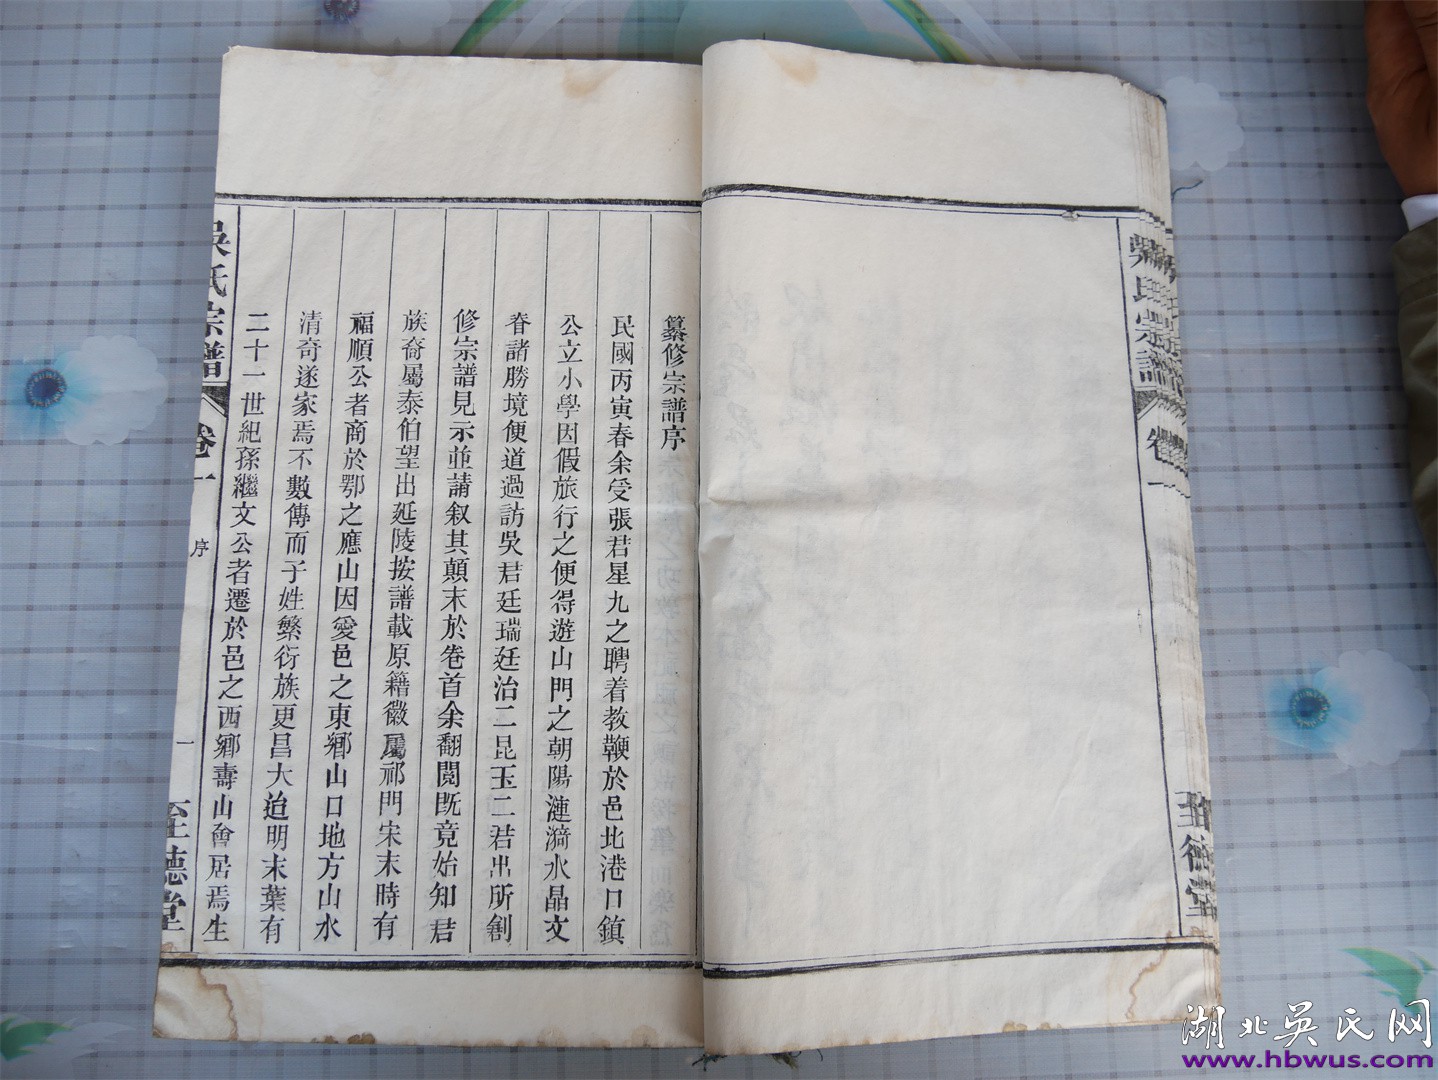 纂修宗譜序
民國丙寅春余受張君星九之聘着教鞭於邑北港口鎮
公立小學因假旅行之便得遊山門之朝陽漣漪水晶文
脊諸勝境便道過訪吳君廷瑞廷治二昆玉二君出所創
修宗譜見示並請叙其顛末於卷首余翻閱既竟始知君
族裔屬泰伯望出延陵按譜載原籍徽屬祁門宋末時有
福順公者商於鄂之應山因愛邑之東鄉山口地方山水
清奇遂家焉不數傳而子姓繁衍族更昌大迨明末葉有
二十一世紀孫繼文公者遷於邑之西鄉壽山會居焉生
吳氏宗譜 卷一 序 一 至德堂
吳氏宗譜 卷一 至德堂
湖北吳氏网
www.hbwus.com